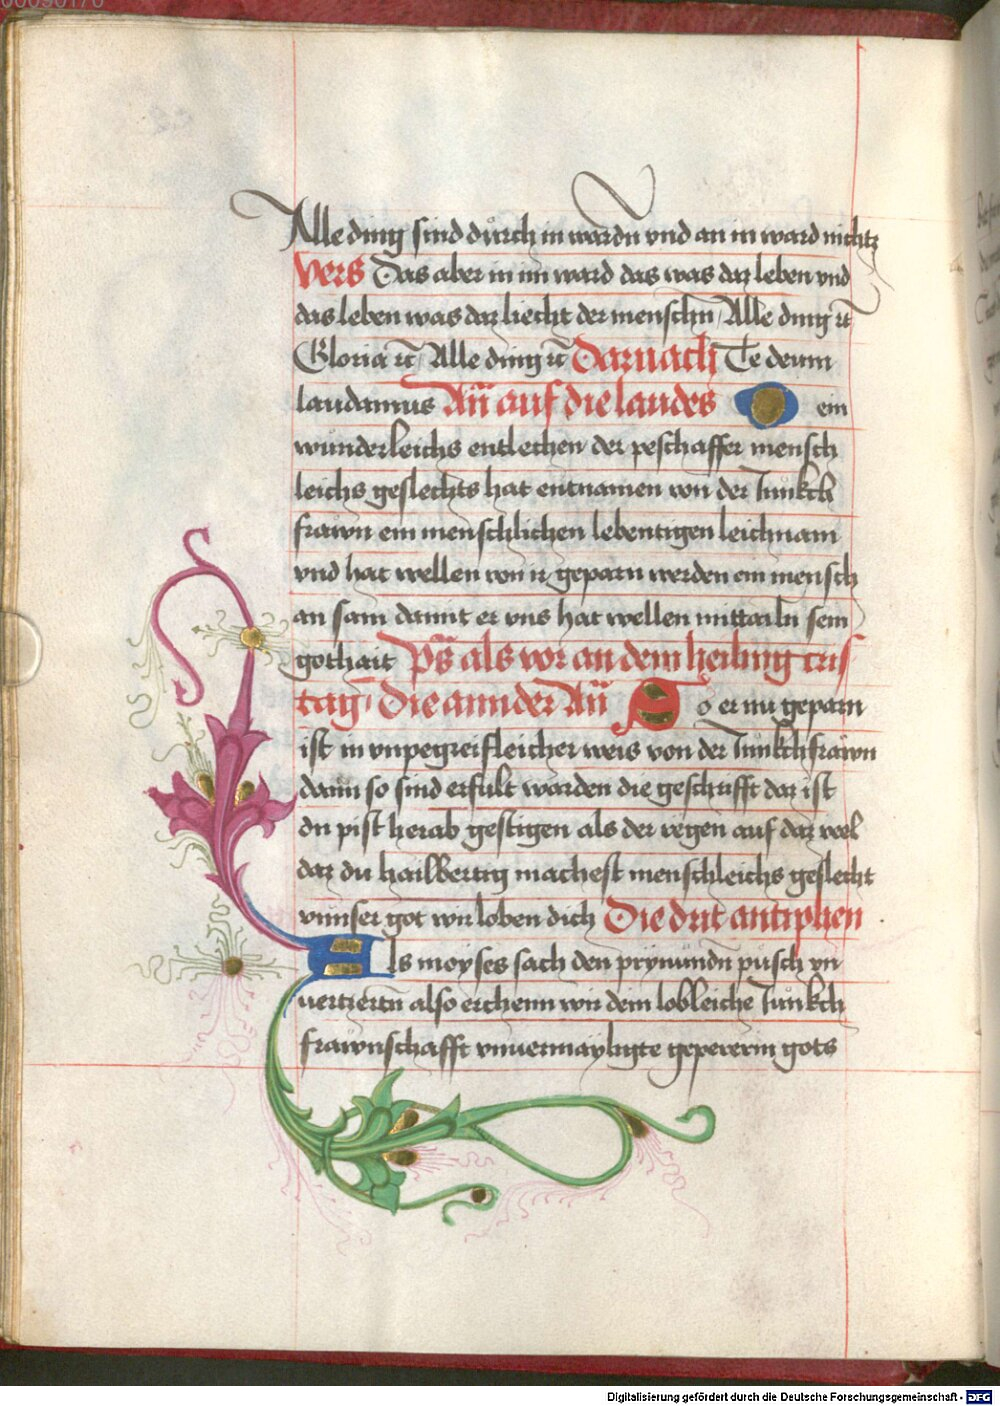 Alle ding sind důrch in warden vnd an in ward nichtz
Vers Das aber in im ward das was daz leben vnd
das leben was daz liecht der menschn Alle ding ꝛc̄
Gloria ꝛc̄ Alle ding ꝛc̄ Darnach Te deum
laudamus An̄ auf die laudes O ein
wunderleichs entlechen der peschaffer mensch
leichs geslechts hat entnamen von der Junkch
frawn ein menschlichen lebentigen leichnam
vnd hat wellen von ir geparn werden ein mensch
an sam damit er vns hat wellen mittailn sein
gothait ps̄ als vor an dem heiling cris
tag Die annder An̄ So er nu geparn
ist in vnpegreifleicher weis von der Junkchfrawn
dann so sind erfult warden die geschrifft daz ist
du pist herab gestigen als der regen auf daz vel
daz du hailbertig machest menschleichs geslecht
vnnser got wir loben dich Die drit antiphen
Als moyses sach den prynundn pusch vn
uertzertn also erchenn wir dein lobleiche Junkch
frawnschafft vnuermayligte gepererin gots
Digitalisierung gefördert durch die Deutsche Forschungsgemeinschaft - DFG